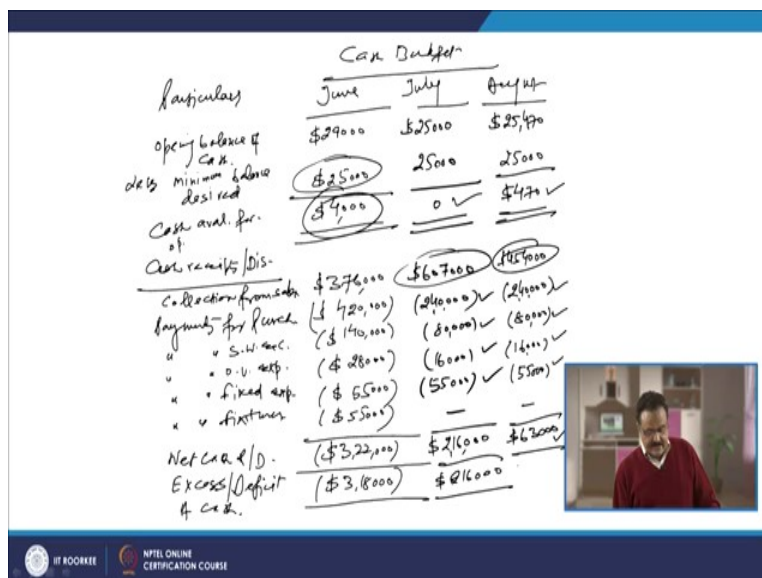 Cash Budget
Particulars June July August
Opening balance of $29000 $25000 $25,470
cash.
Less minimum balance $25000 25000 25000
desired
Cash aval. for. $4,000 0 ✓ $470 ✓
op.
Cash receipts/Dis-
Collection from sales $376,000 $607000 $454000
Payments for Purch ($ 420,000) (240,000) ✓ (240,000) ✓
" " S.W. sec. ($ 140,000) (80,000) ✓ (80,000) ✓
" " O.V. exp. ($ 28000) (16000) ✓ (16000) ✓
" " fixed exp. ($ 55000) (55000) ✓ (55000) ✓
" " fixtures ($ 55000) — —
Net Cash R/D. ($3,22,000) $2,16,000 $63000 ✓
Excess/Deficit ($ 3,18000) $216000
of cash.
IIT ROORKEE NPTEL ONLINE
CERTIFICATION COURSE